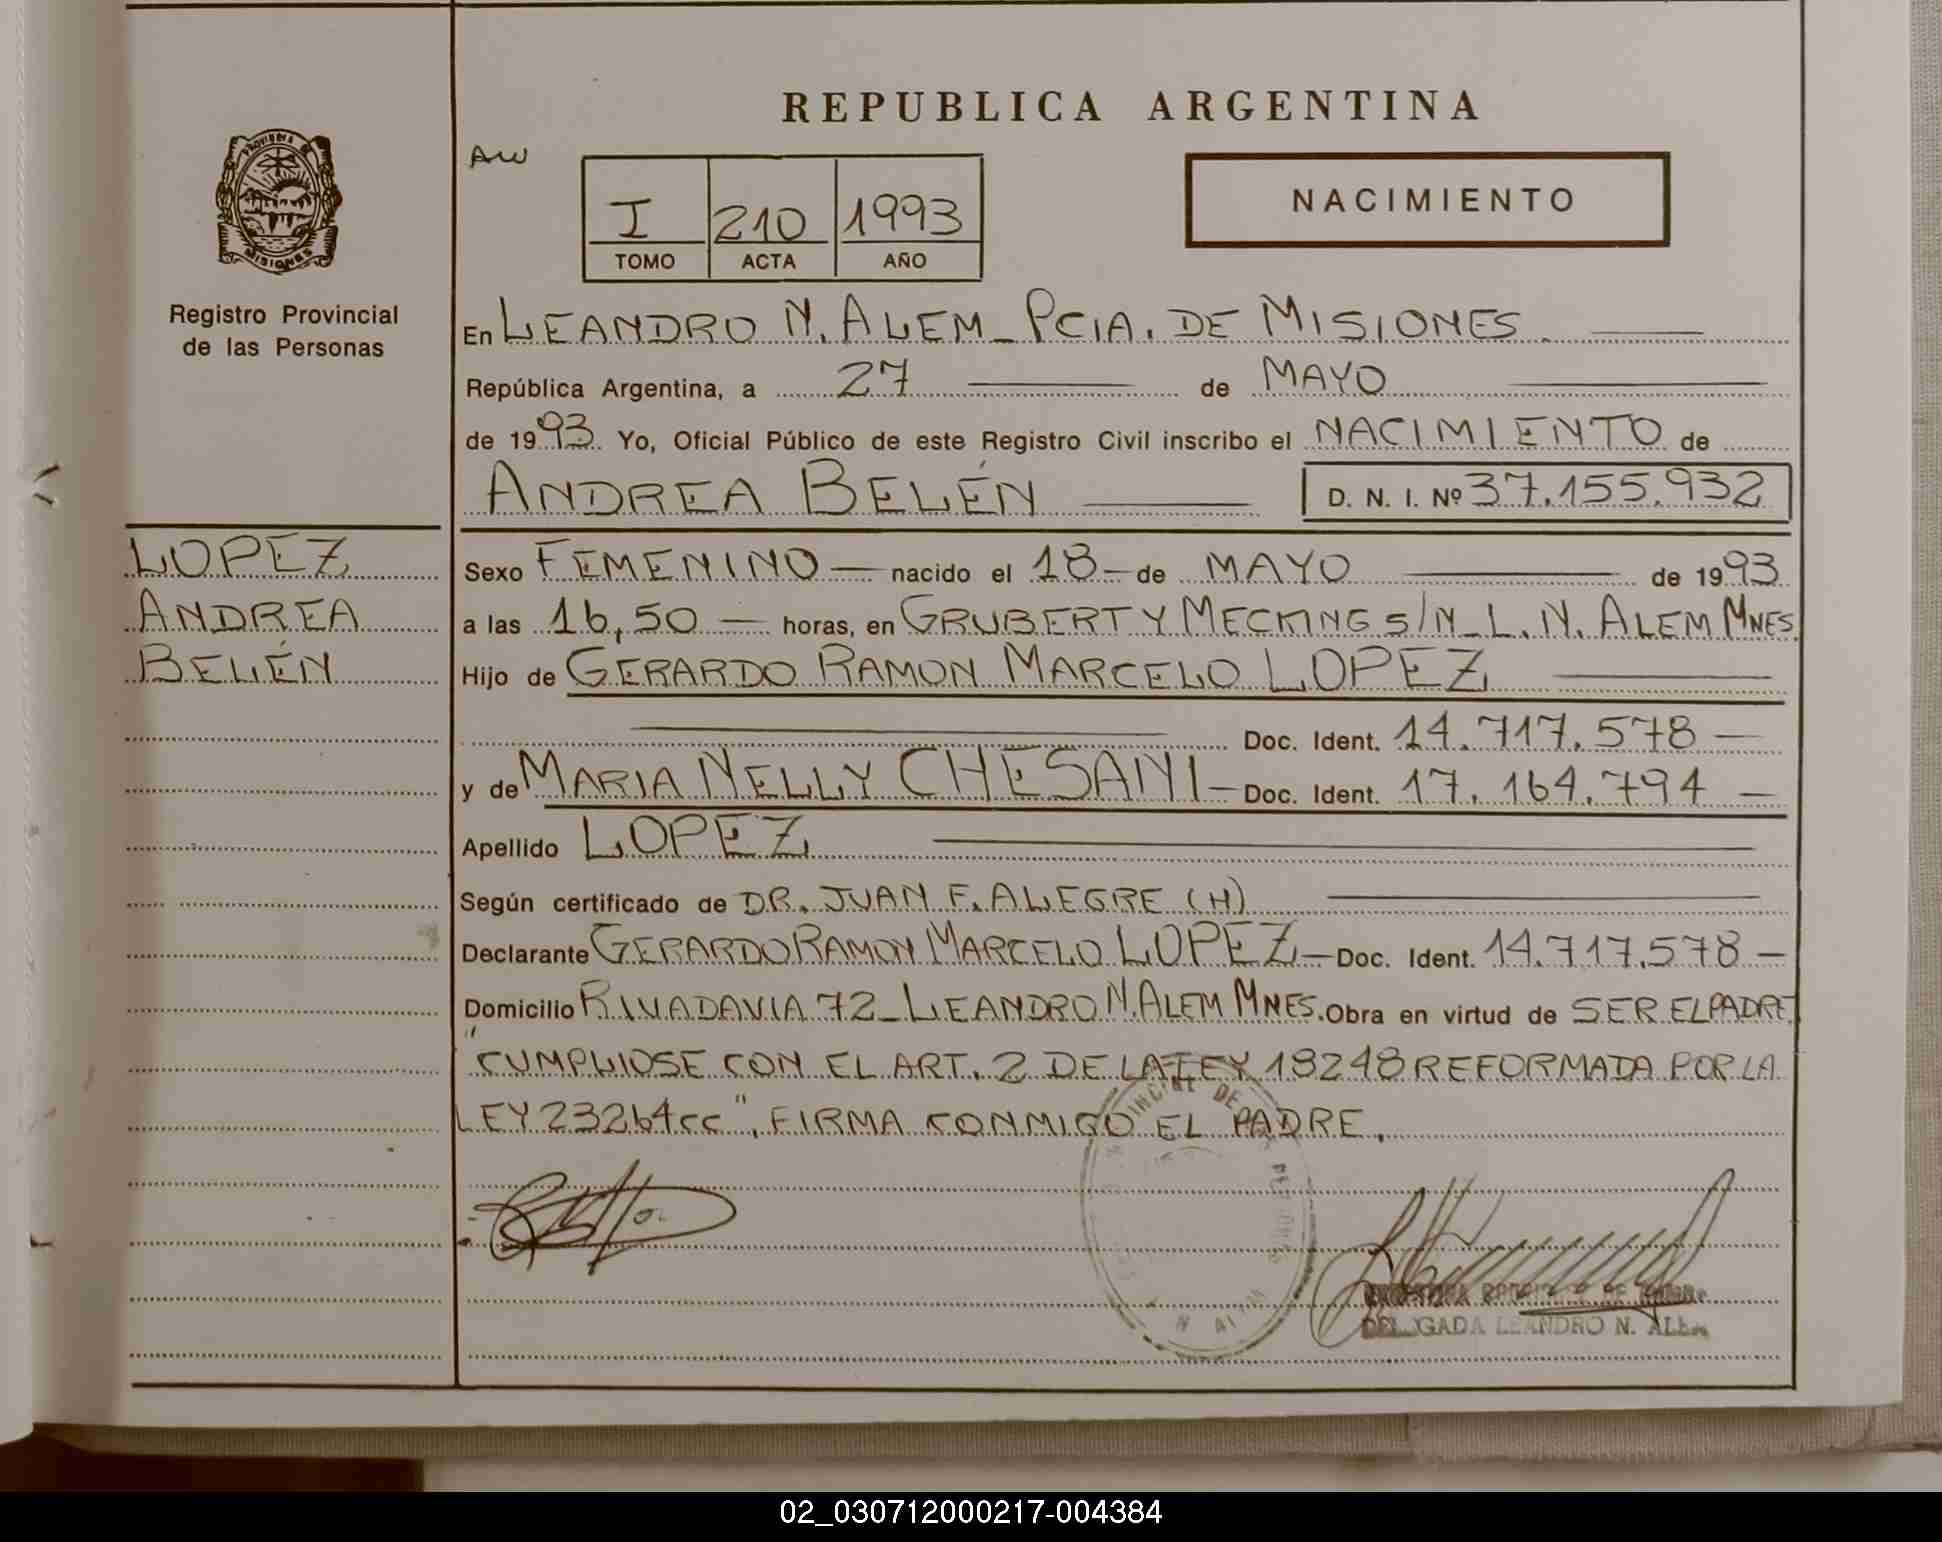 REPUBLICA ARGENTINA
AW
I 210 1993
TOMO ACTA AÑO
NACIMIENTO
PROVINCIA DE
MISIONES
Registro Provincial
de las Personas
En LEANDRO N. ALEM_PCIA. DE MISIONES.
República Argentina, a 27 de MAYO
de 1993 Yo, Oficial Público de este Registro Civil inscribo el NACIMIENTO de
ANDREA BELÉN D. N. I. Nº 37.155.932
LOPEZ
ANDREA
BELÉN
Sexo FEMENINO — nacido el 18 — de MAYO de 1993
a las 16,50 — horas, en GRUBERT Y MECKING S/N_L.N. ALEM MNES.
Hijo de GERARDO RAMON MARCELO LOPEZ
Doc. Ident. 14.717.578 —
y de MARIA NELLY CHESANI — Doc. Ident. 17.164.794 —
Apellido LOPEZ
Según certificado de DR. JUAN F. ALEGRE (H)
Declarante GERARDO RAMON MARCELO LOPEZ — Doc. Ident. 14.717.578 —
Domicilio RIVADAVIA 72_LEANDRO N. ALEM MNES. Obra en virtud de SER EL PADRE.
"CUMPLIOSE CON EL ART. 2 DE LA LEY 18248 REFORMADA POR LA
LEY 23264 CC". FIRMA CONMIGO EL PADRE.
DELEGADA LEANDRO N. ALEM
02_030712000217-004384